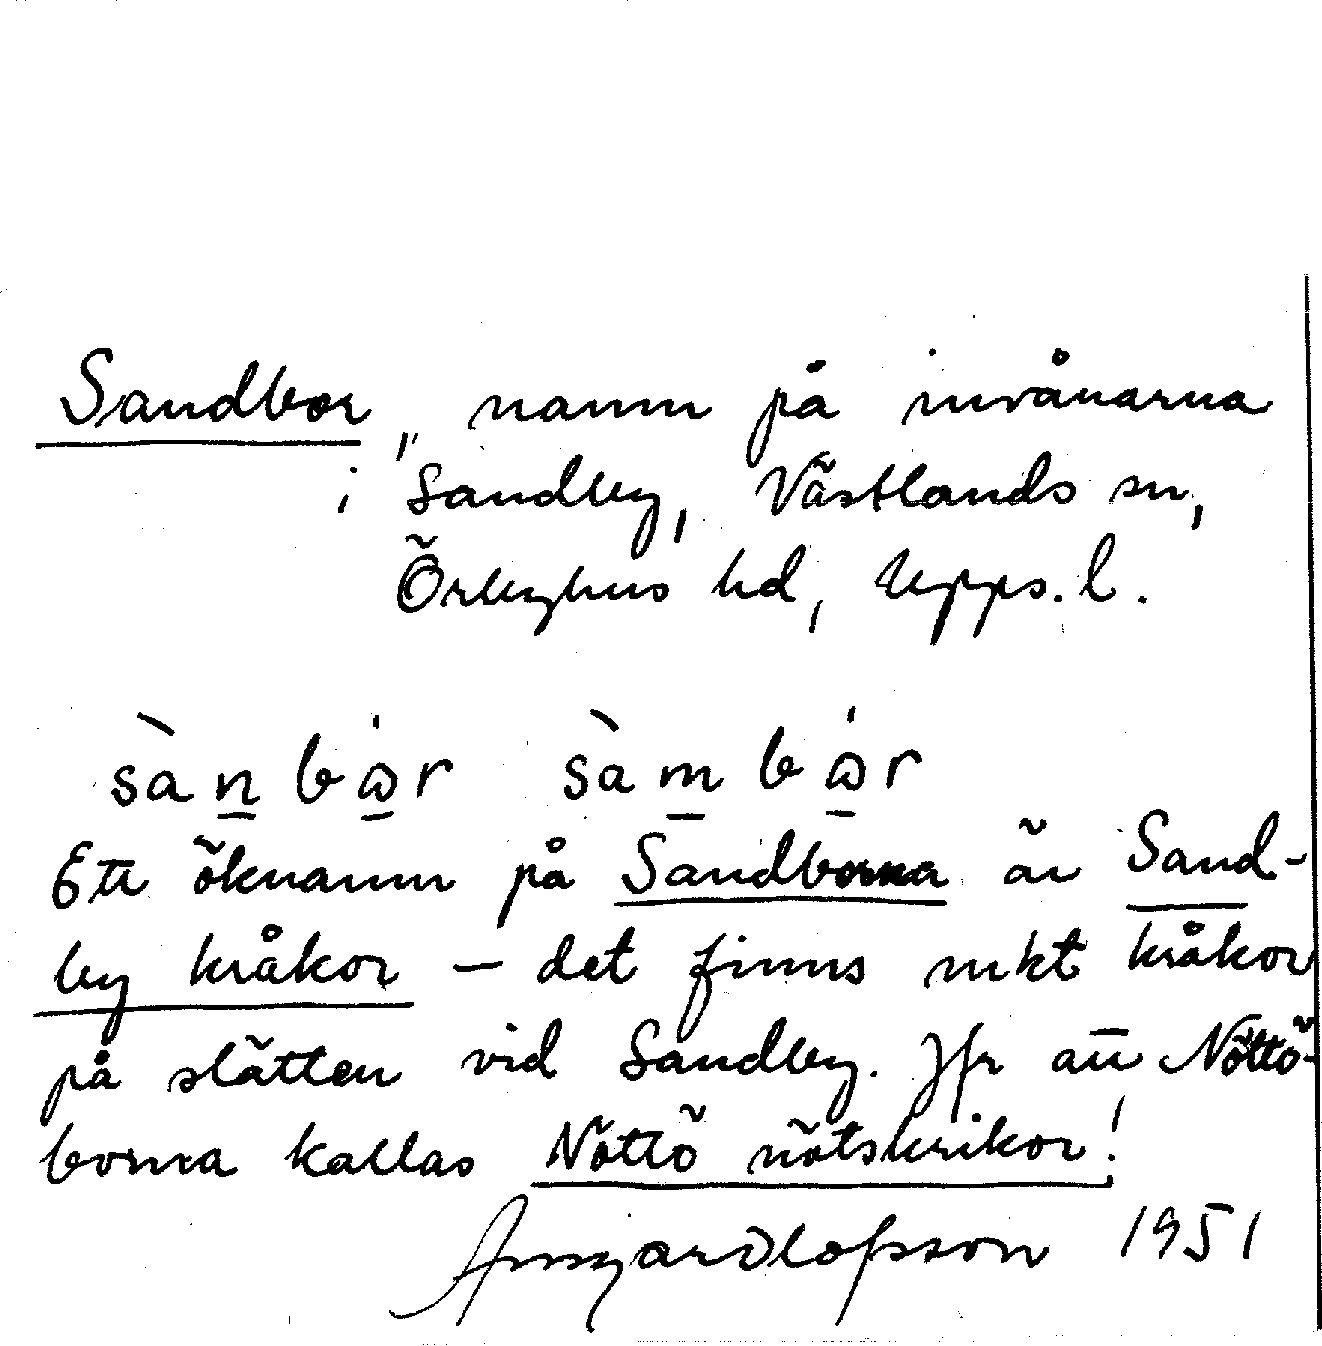 Sandbor, namn på invånarna
i Sandby, Västlands sn,
Örbyhus hd, Upps. l.
sànbωr sàmbωr
Ett öknamn på Sandborna är Sand-
by kråkor – det finns mkt kråkor
på slätten vid Sandby. Jfr att Nöttö-
borna kallas Nöttö nötskrikor!
1951